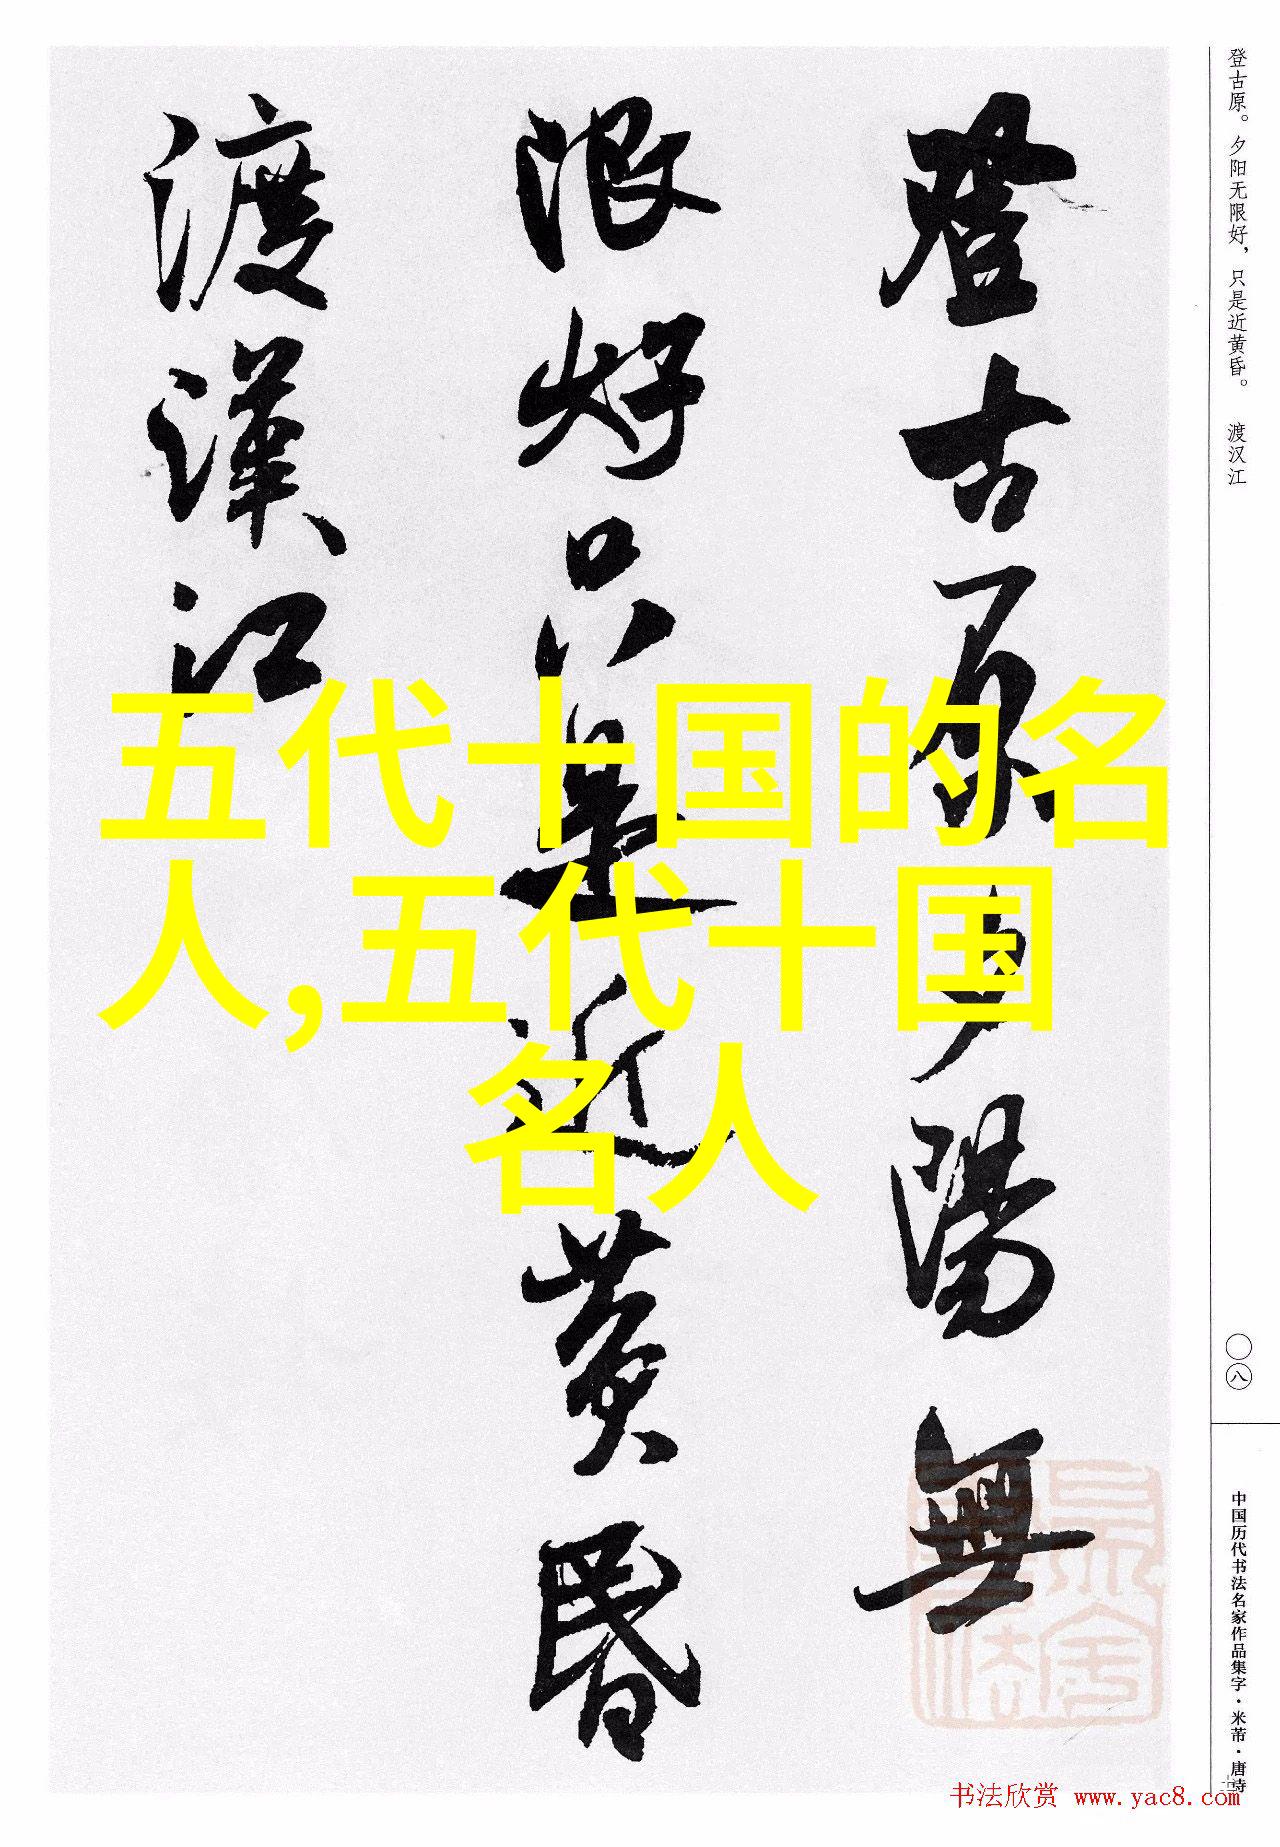 登古原夕陽無
限好只是近黄昏
渡漢江
五代十国的名
人,五代十国
名人
登古原。夕阳无限好，只是近黄昏。 渡汉江
〇八
中国历代书法名家作品集字·米芾·唐诗
书法欣赏 www.yac8.com